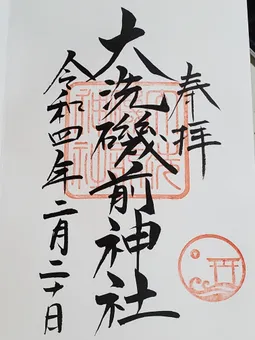 奉拝
大洗磯前神社
令和四年二月二十日